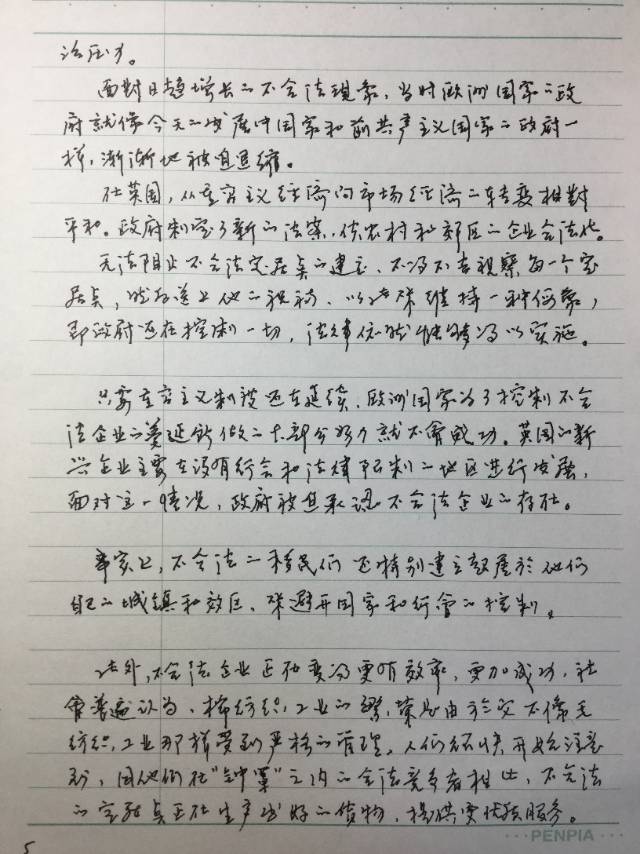 治压力。
面對日趋增长的不合法現象，当时欧洲国家的政
府就像今天的发展中国家和前共产主义国家的政府一
样，渐渐地被迫退缩。
在英国，从重商主义经济向市场经济的转变相對
平和。政府制定了新的法案，使农村和郊区的企业合法化。
无法阻止不合法定居点的建立，不得不去視察每一个定
居点，然后送上他的祝福，以此来维持一种假象，
即政府还在控制一切，法律依然能够得以实施。
只要重商主义制度还在延续，欧洲国家为了控制不合
法企业的蔓延所做的大部分努力就不會成功。英国的新
兴企业主要在没有行会和法律限制的地区进行发展，
面对这一情况，政府被迫承認不合法企业的存在。
事实上，不合法的移民们还特别建立起属於他们
自己的城鎮和郊区，来避开国家和行會的控制。
此外，不合法企业正在变得更有效率，更加成功，社
會普遍认为，棉纺织工业的繁荣是由于它不像毛
纺织工业那样受到严格的管理。人们很快开始注意
到，同他们在"钟罩"之内的合法竞争者相比，不合法
的定居点正在生产出好的货物，提供更优质服务。
5
PENPIA